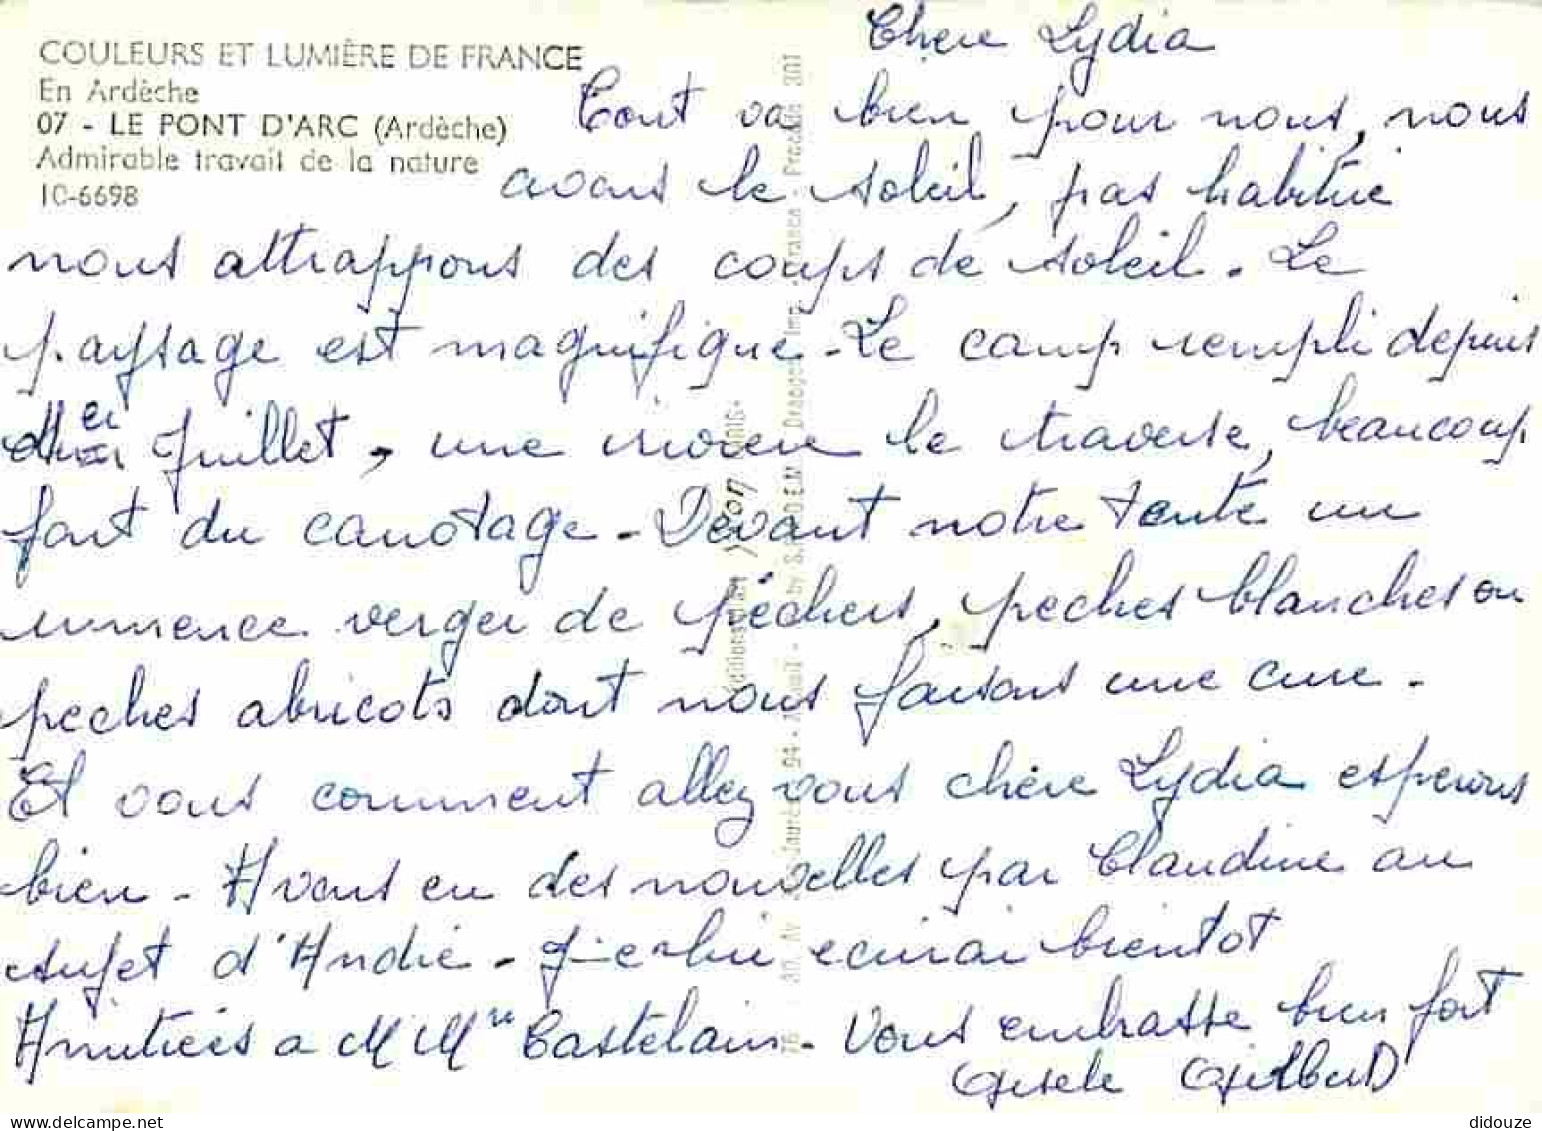 COULEURS ET LUMIÈRE DE FRANCE
En Ardèche
07 - LE PONT D'ARC (Ardèche)
Admirable travail de la nature
10-6698
Chere Lydia
Tout va bien pour nous, nous
avons le soleil, pas habitué
nous attrappons des coups de soleil. Le
paysage est magnifique - Le camp rempli depuis
er Juillet, une riviere le traverse, beaucoup
font du canotage - Devant notre tente un
immence verger de pêchers, peches blanches ou
peches abricots dont nous faisons une cure.
Et vous comment allez vous chère Lydia esperons
bien - Avons eu des nouvelles par Claudine au
sujet d'André - Je lui ecrirai bientot
Amitiés a M Mme Castelain - Vous embrasse bien fort
Gisele Gilbert
Editions yvon
didouze